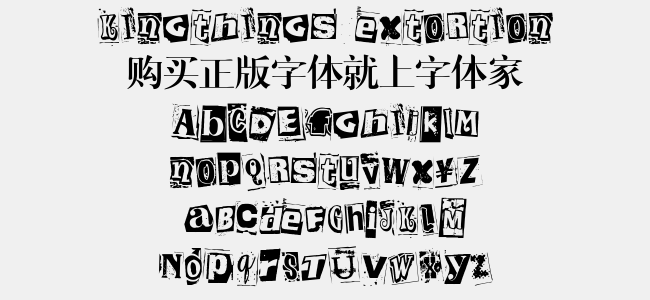 Kingthings Extortion
购买正版字体就上字体家
AbCDEfGhIjkLM
nOPQRSTUVWXYZ
aBCdeFGhiJKLM
NOpqrSTUVWXyz